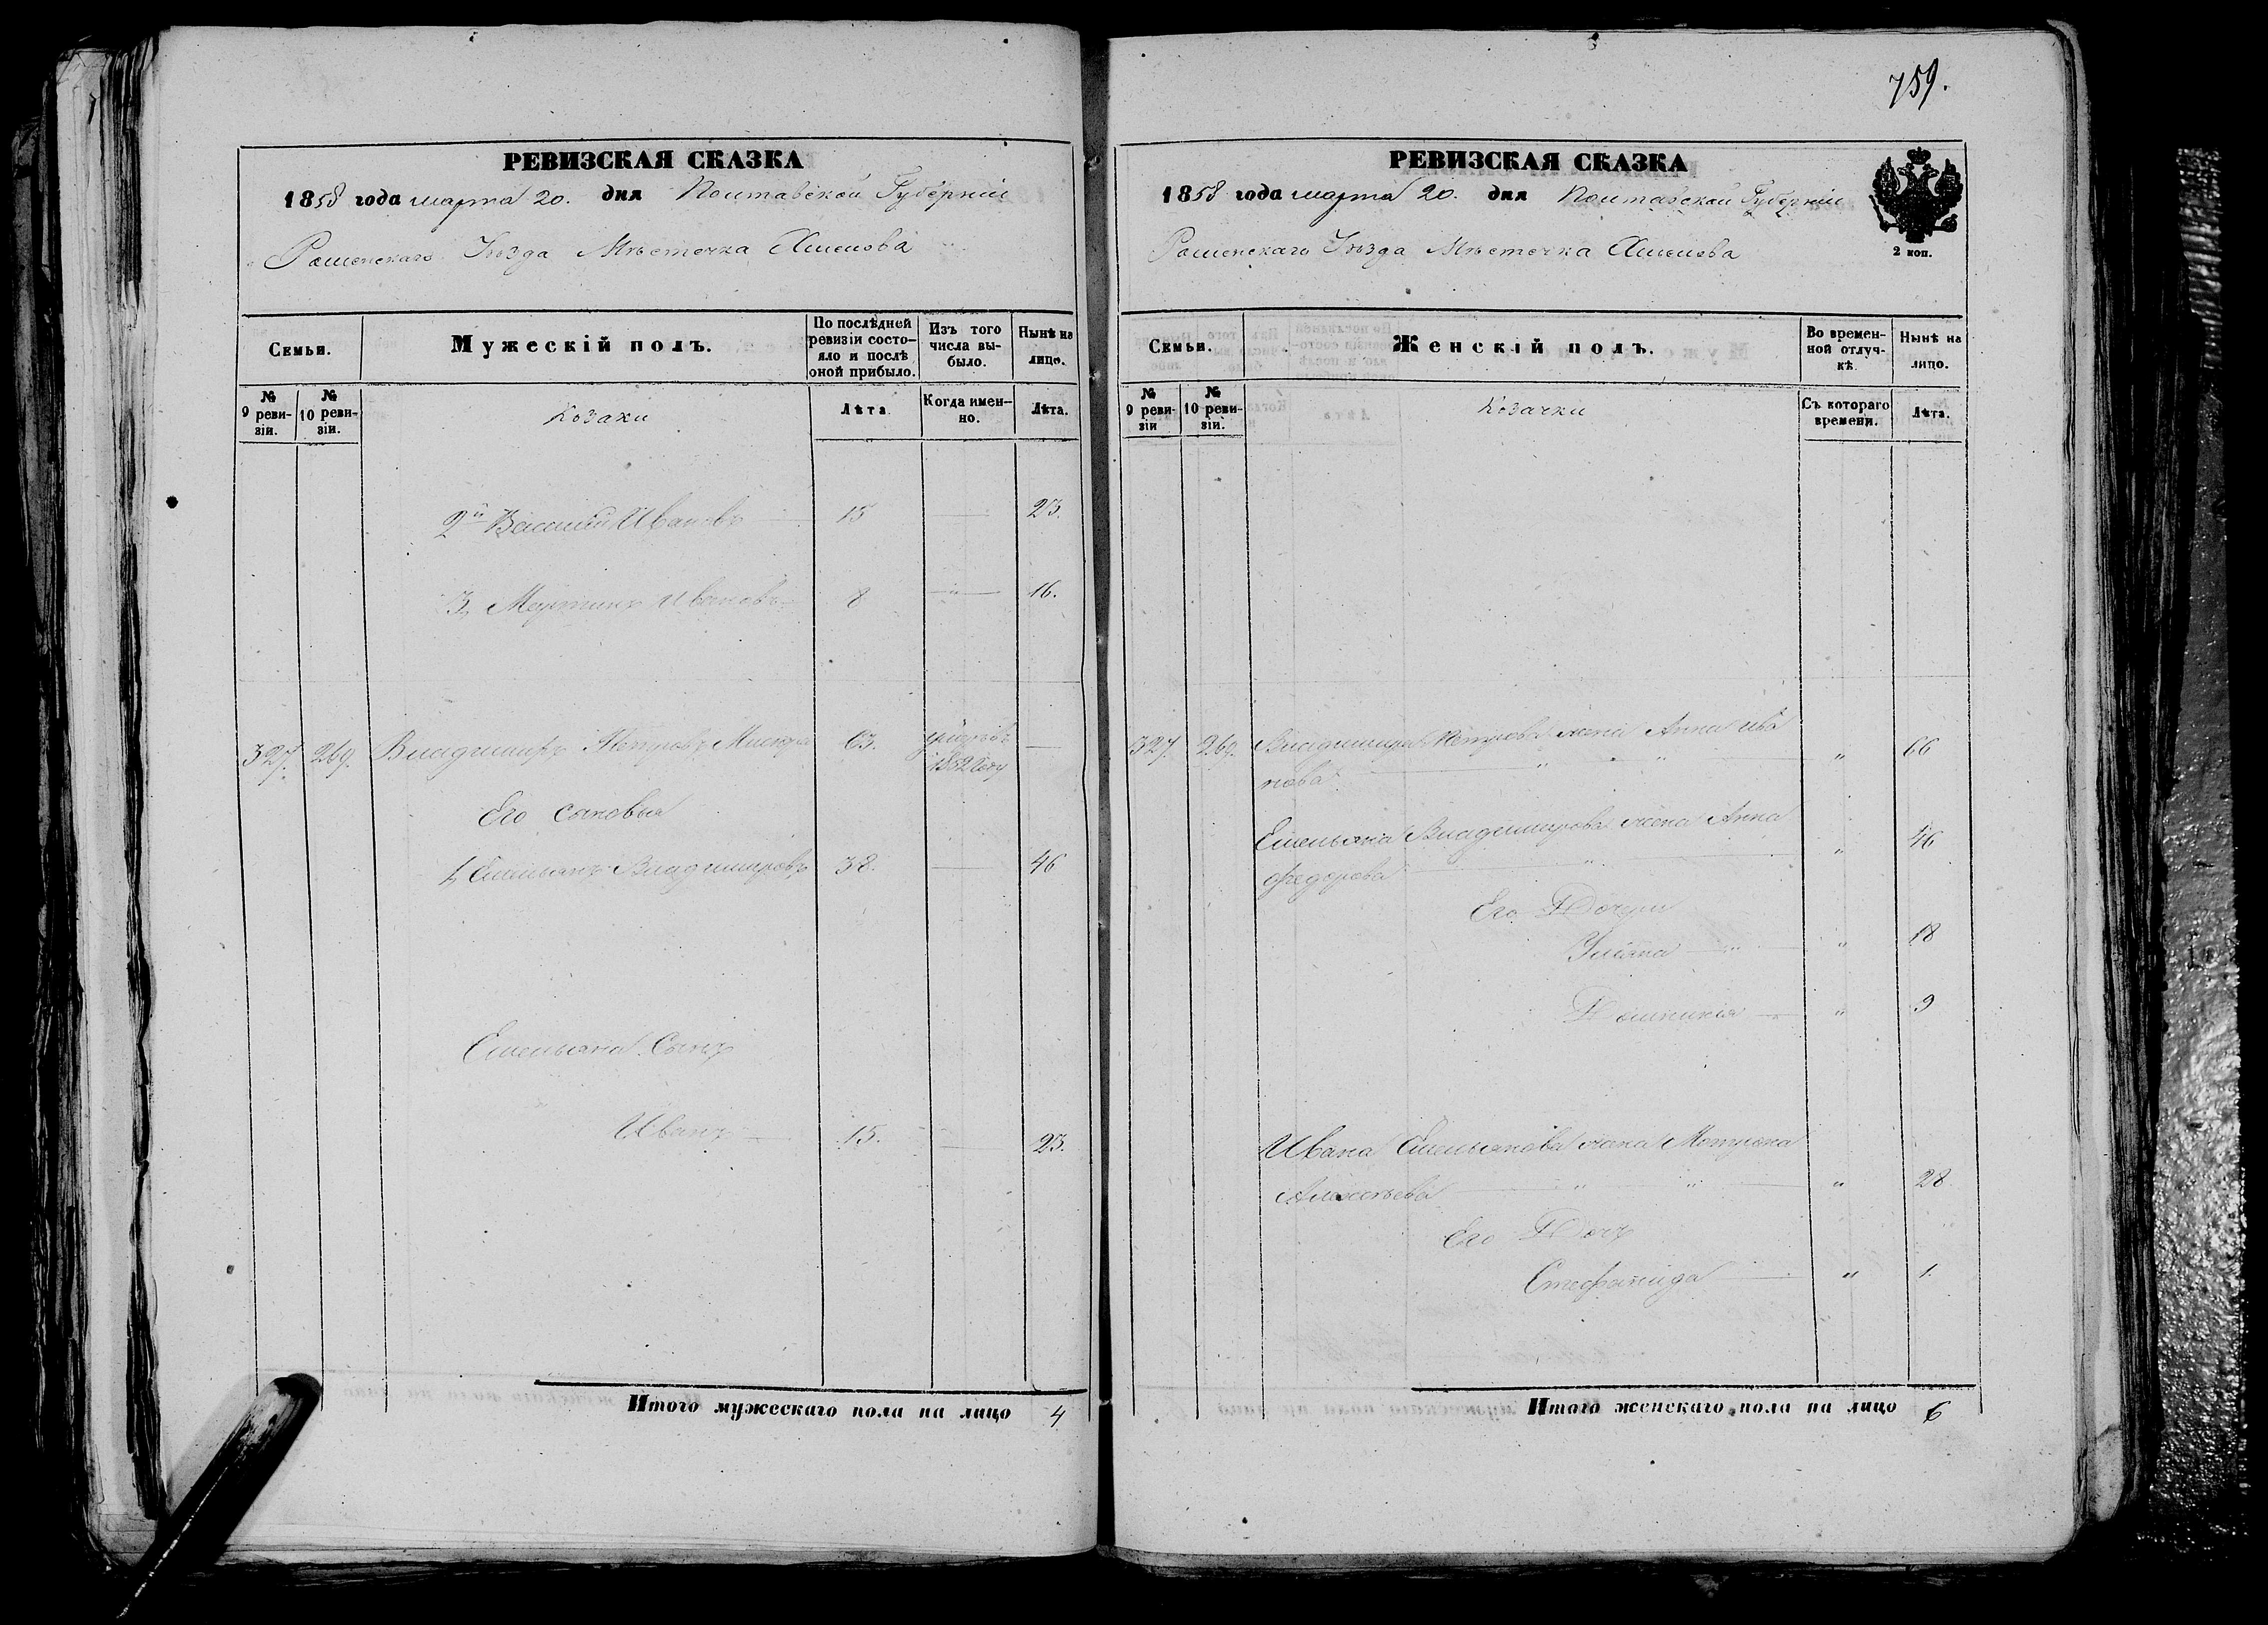 759.
РЕВИЗСКАЯ СКАЗКА
1858 года марта 20. дня Полтавской Губерніи
Роменскаго Уѣзда Мѣстечка
Семьи.
Мужескій полъ.
По послѣдней ревизіи состояло и послѣ оной прибыло.
Изъ того числа выбыло.
Нынѣ на лицо.
№ 9 ревизіи.
№ 10 ревизіи.
Козаки
Лѣта
Когда именно.
Лѣта.
2й Василій Ивановъ 15 — 23.
3, Мартинъ Ивановъ 8 — " — 16.
327. 269. Владимиръ Петровъ 63. умеръ въ 1852 году —
Его сыновья
1, Емельянъ Владимировъ 38. — 46
Емельяна Сынъ
Иванъ — 15. — 23.
Итого мужескаго пола на лицо 4
РЕВИЗСКАЯ СКАЗКА
1858 года марта 20. дня Полтавской Губерніи
Роменскаго Уѣзда Мѣстечка
2 коп.
Семьи.
Женскій полъ.
Во временной отлучкѣ.
Нынѣ на лицо.
№ 9 ревизіи
№ 10 ревизіи.
Козачки
Съ котораго времени.
Лѣта.
327. 269. Владимира Петрова жена Анна Ива
нова " " " 66
Емельяна Владимирова жена Анна
Федорова " " 46
Его Дочери
Уліана " " 18
Домникія " 9
Ивана Емельянова жена Мотрона
Алексѣева " " " 28.
Его Дочь
Стефанида — " 1.
Итого женскаго пола на лицо 6